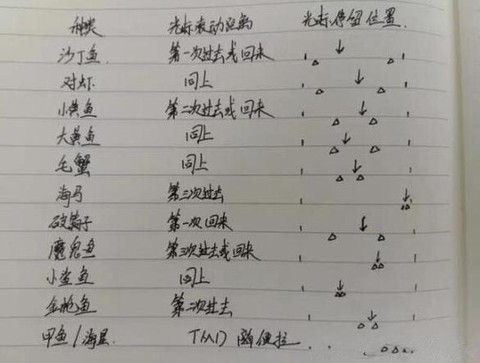 种类 光标表动距离 光标停留位置
沙丁鱼 第一次过去或回来
对虾 同上
小黄鱼 第二次过去或回来
大黄鱼 同上
毛蟹 同上
海马 第三次过去
第一次回来
魔鬼鱼 第三次过去或回来
小鲨鱼 同上
金枪鱼 第二次过去
甲鱼/海星 随便拉